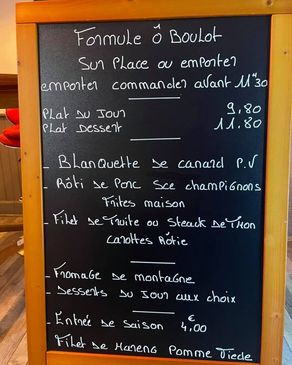 Formule Ô Boulot
Sur Place ou emporter
emporter commander avant 11"30
Plat du Jour 9,80
Plat Dessert 11.80
- Blanquette de canard P.V
- Rôti de Porc Sce champignons
Frites maison
- Filet de Truite ou Steack de Thon
Carottes Rôtie
- Fromage de montagne
- Desserts du Jour aux choix
- Entrée de Saison 4,00 €
Filet de Hareng Pomme Tiede